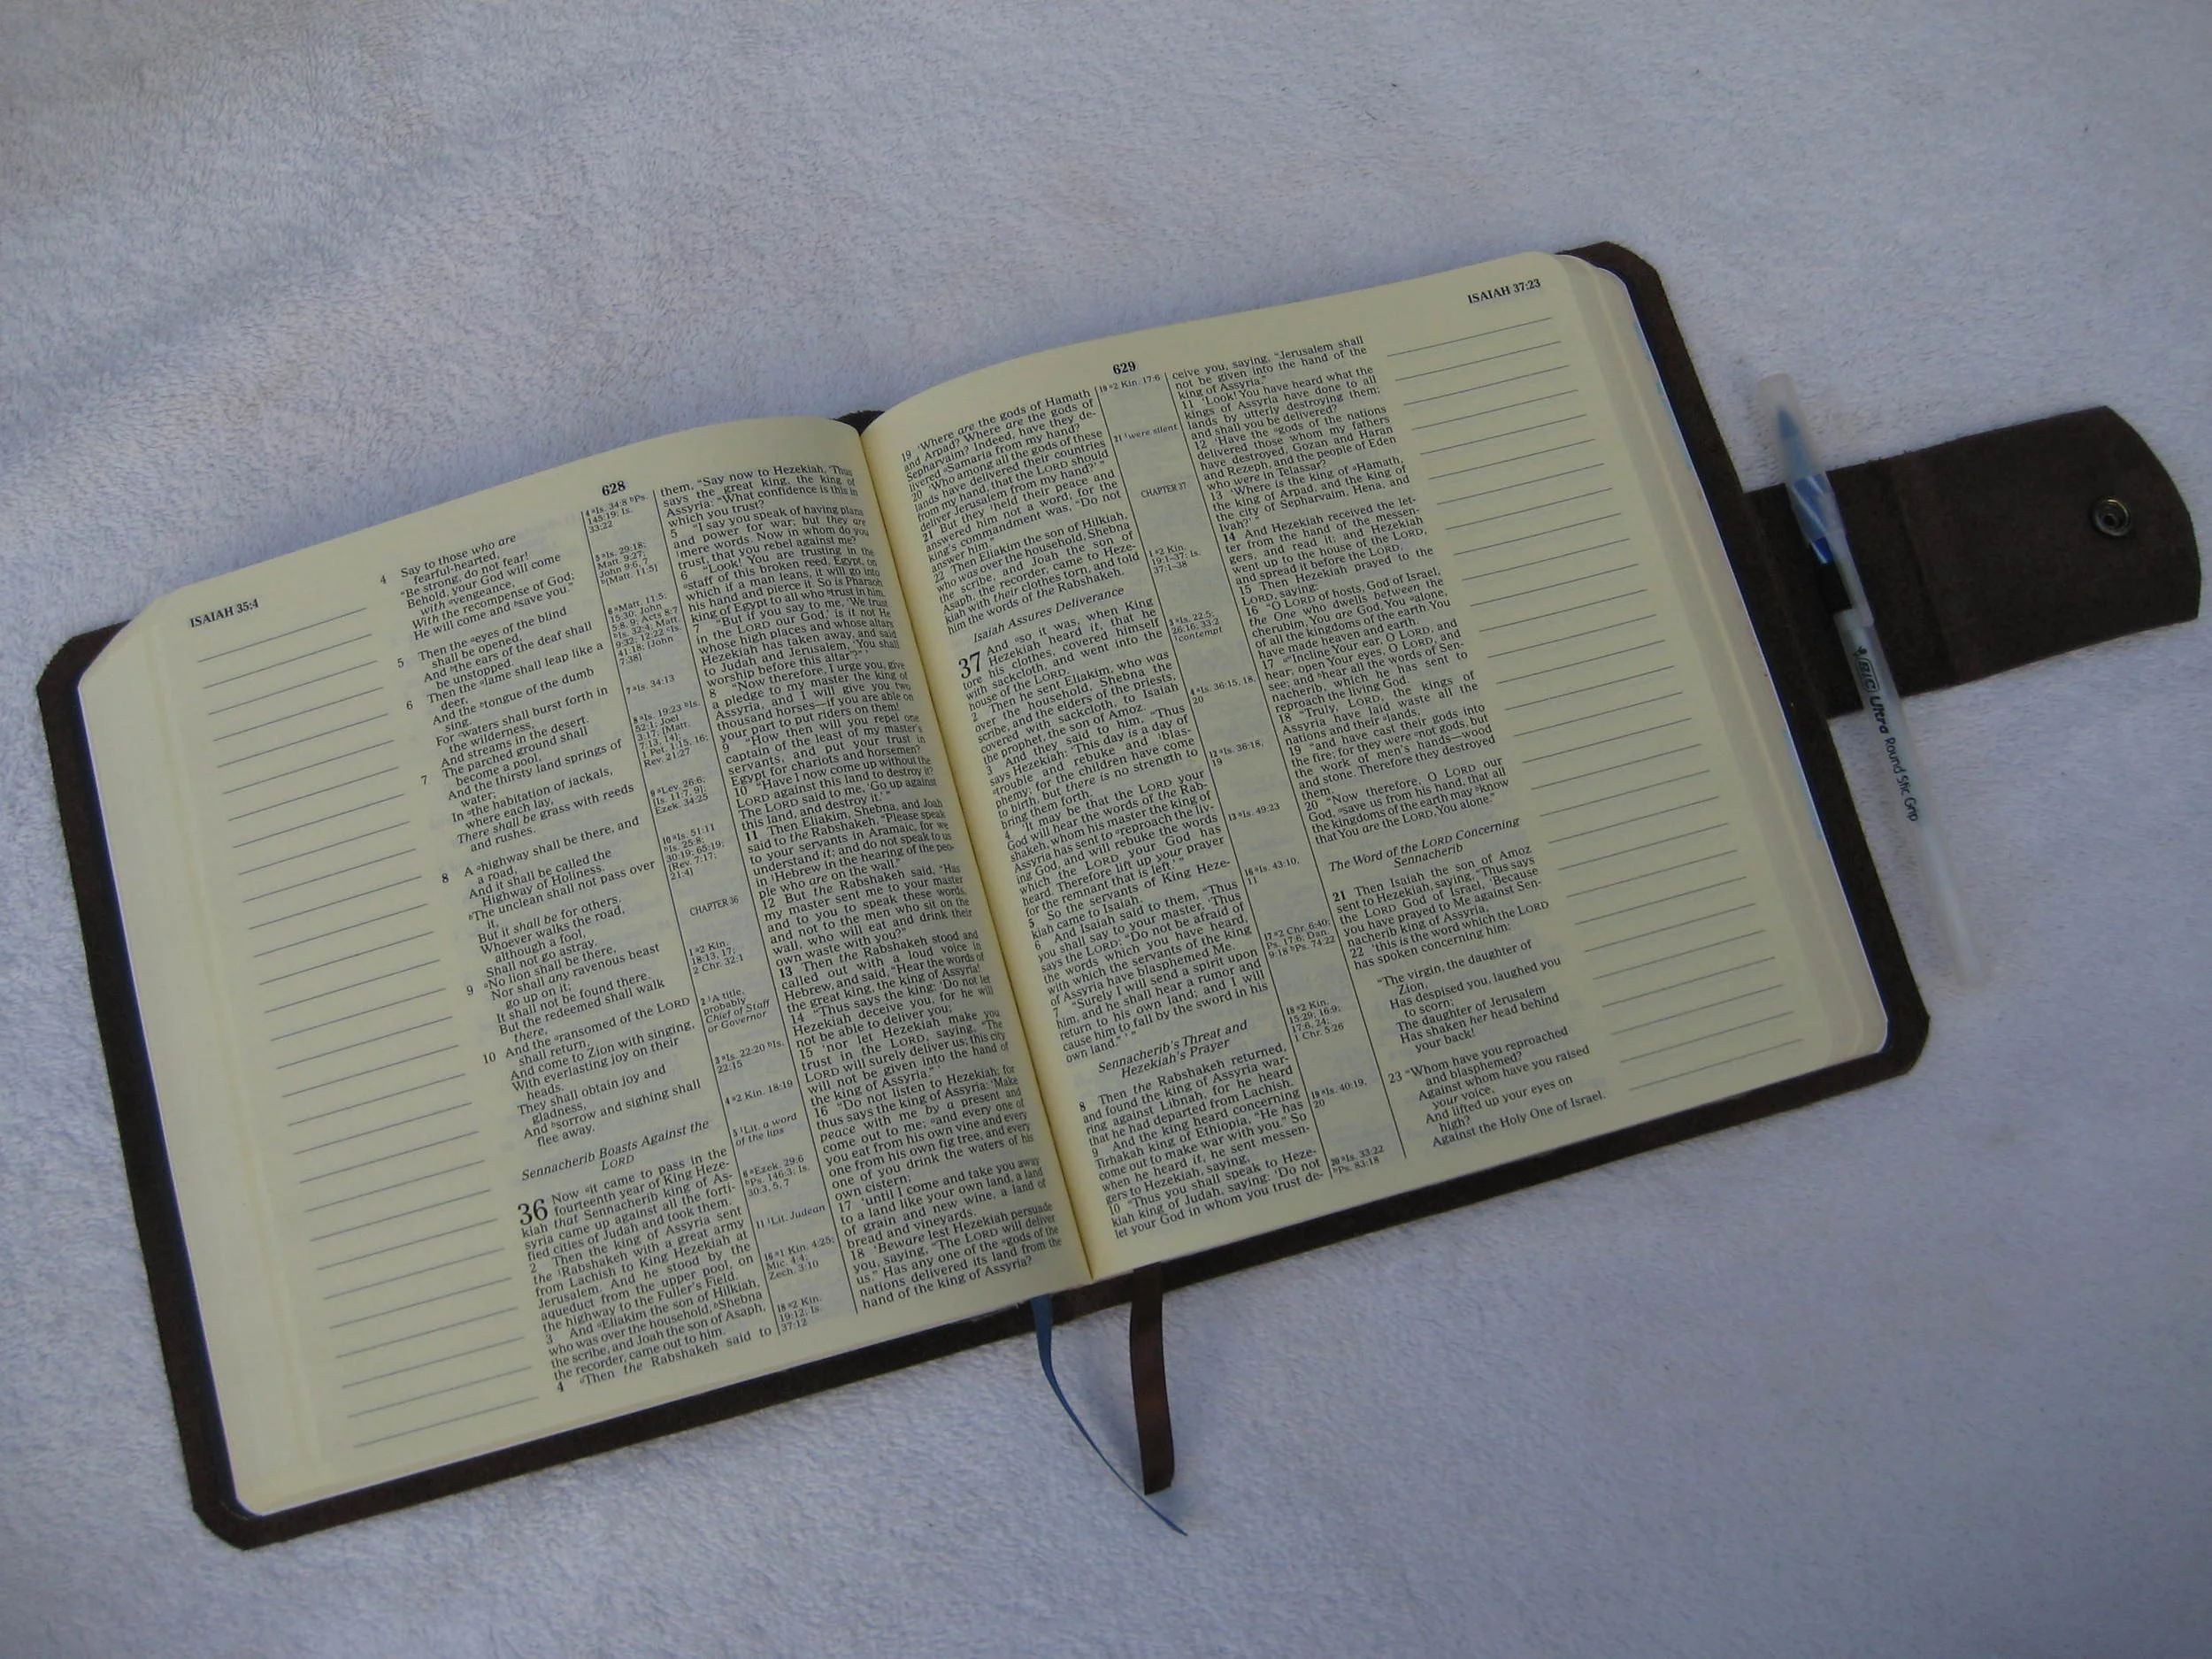 ISAIAH 35:4
628
4 Say to those who are
fearful-hearted,
"Be strong, do not fear!
Behold, your God will come
with ᵃvengeance,
With the recompense of God;
He will come and ᵇsave you."
5 Then the ᵃeyes of the blind
shall be opened,
And ᵇthe ears of the deaf shall
be unstopped.
6 Then the ᵃlame shall leap like a
deer,
And the ᵇtongue of the dumb
sing.
For ᶜwaters shall burst forth in
the wilderness,
And streams in the desert.
7 The parched ground shall
become a pool,
And the thirsty land springs of
water;
In ᵃthe habitation of jackals,
where each lay,
There shall be grass with reeds
and rushes.
8 A ᵃhighway shall be there, and
a road,
And it shall be called the
Highway of Holiness.
ᵇThe unclean shall not pass over
it,
But it shall be for others.
Whoever walks the road,
although a fool,
Shall not go astray.
9 ᵃNo lion shall be there,
Nor shall any ravenous beast
go up on it;
It shall not be found there.
But the redeemed shall walk
there,
10 And the ᵃransomed of the LORD
shall return,
And come to Zion with singing,
With everlasting joy on their
heads.
They shall obtain joy and
gladness,
And ᵇsorrow and sighing shall
flee away.
Sennacherib Boasts Against the
LORD
36 Now ᵃit came to pass in the
fourteenth year of King Heze-
kiah that Sennacherib king of As-
syria came up against all the forti-
fied cities of Judah and took them.
2 Then the king of Assyria sent
the ¹Rabshakeh with a great army
from Lachish to King Hezekiah at
Jerusalem. And he stood by the
aqueduct from the upper pool, on
the highway to the Fuller's Field.
3 And ᵃEliakim the son of Hilkiah,
who was over the household, ᵇShebna
the scribe, and Joah the son of Asaph,
the recorder, came out to him.
4 ᵃThen the Rabshakeh said to
4 ᵃIs. 34:8 ᵇPs.
145:19; Is.
33:22
5 ᵃIs. 29:18;
Matt. 9:27;
John 9:6, 7
ᵇ[Matt. 11:5]
6 ᵃMatt. 11:5;
15:30; John
5:8, 9; Acts 8:7
ᵇIs. 32:4; Matt.
9:32; 12:22 ᶜIs.
41:18; [John
7:38]
7 ᵃIs. 34:13
8 ᵃIs. 19:23 ᵇIs.
52:1; Joel
3:17; [Matt.
7:13, 14];
1 Pet. 1:15, 16;
Rev. 21:27
9 ᵃLev. 26:6;
[Is. 11:7, 9];
Ezek. 34:25
10 ᵃIs. 51:11
ᵇIs. 25:8;
30:19; 65:19;
[Rev. 7:17;
21:4]
CHAPTER 36
1 ᵃ2 Kin.
18:13, 17;
2 Chr. 32:1
2 ¹A title,
probably
Chief of Staff
or Governor
3 ᵃIs. 22:20 ᵇIs.
22:15
4 ᵃ2 Kin. 18:19
5 ¹Lit. a word
of the lips
6 ᵃEzek. 29:6
ᵇPs. 146:3; Is.
30:3, 5, 7
11 ¹Lit. Judean
16 ᵃ1 Kin. 4:25;
Mic. 4:4;
Zech. 3:10
18 ᵃ2 Kin.
19:12; Is.
37:12
them, "Say now to Hezekiah, 'Thus
says the great king, the king of
Assyria: "What confidence is this in
which you trust?
5 "I say you speak of having plans
and power for war; but they are
¹mere words. Now in whom do you
trust, that you rebel against me?
6 "Look! You are trusting in the
ᵃstaff of this broken reed, Egypt, on
which if a man leans, it will go into
his hand and pierce it. So is Pharaoh
king of Egypt to all who ᵇtrust in him.
7 "But if you say to me, 'We trust
in the LORD our God,' is it not He
whose high places and whose altars
Hezekiah has taken away, and said
to Judah and Jerusalem, 'You shall
worship before this altar'?" '
8 "Now therefore, I urge you, give
a pledge to my master the king of
Assyria, and I will give you two
thousand horses—if you are able on
your part to put riders on them!
9 "How then will you repel one
captain of the least of my master's
servants, and put your trust in
Egypt for chariots and horsemen?
10 "Have I now come up without the
LORD against this land to destroy it?
The LORD said to me, 'Go up against
this land, and destroy it.' "
11 Then Eliakim, Shebna, and Joah
said to the Rabshakeh, "Please speak
to your servants in Aramaic, for we
understand it; and do not speak to us
in ¹Hebrew in the hearing of the peo-
ple who are on the wall."
12 But the Rabshakeh said, "Has
my master sent me to your master
and to you to speak these words,
and not to the men who sit on the
wall, who will eat and drink their
own waste with you?"
13 Then the Rabshakeh stood and
called out with a loud voice in
Hebrew, and said, "Hear the words of
the great king, the king of Assyria!
14 "Thus says the king: 'Do not let
Hezekiah deceive you, for he will
not be able to deliver you;
15 'nor let Hezekiah make you
trust in the LORD, saying, "The
LORD will surely deliver us; this city
will not be given into the hand of
the king of Assyria." '
16 "Do not listen to Hezekiah; for
thus says the king of Assyria: 'Make
peace with me by a present and
come out to me; ᵃand every one of
you eat from his own vine and every
one from his own fig tree, and every
one of you drink the waters of his
own cistern;
17 'until I come and take you away
to a land like your own land, a land
of grain and new wine, a land of
bread and vineyards.
18 'Beware lest Hezekiah persuade
you, saying, "The LORD will deliver
us." Has any one of the ᵃgods of the
nations delivered its land from the
hand of the king of Assyria?
629
ISAIAH 37:23
19 'Where are the gods of Hamath
and Arpad? Where are the gods of
Sepharvaim? Indeed, have they de-
livered ᵃSamaria from my hand?
20 'Who among all the gods of these
lands have delivered their countries
from my hand, that the LORD should
deliver Jerusalem from my hand?' "
21 But they ¹held their peace and
answered him not a word; for the
king's commandment was, "Do not
answer him."
22 Then Eliakim the son of Hilkiah,
who was over the household, Shebna
the scribe, and Joah the son of
Asaph, the recorder, came to Heze-
kiah with their clothes torn, and told
him the words of the Rabshakeh.
Isaiah Assures Deliverance
37 And ᵃso it was, when King
Hezekiah heard it, that he
tore his clothes, covered himself
with sackcloth, and went into the
house of the LORD.
2 Then he sent Eliakim, who was
over the household, Shebna the
scribe, and the elders of the priests,
covered with sackcloth, to Isaiah
the prophet, the son of Amoz.
3 And they said to him, "Thus
says Hezekiah: 'This day is a day of
ᵃtrouble and rebuke and ¹blas-
phemy; for the children have come
to birth, but there is no strength to
bring them forth.
4 'It may be that the LORD your
God will hear the words of the Rab-
shakeh, whom his master the king of
Assyria has sent to ᵃreproach the liv-
ing God, and will rebuke the words
which the LORD your God has
heard. Therefore lift up your prayer
for the remnant that is left.' "
5 So the servants of King Heze-
kiah came to Isaiah.
6 And Isaiah said to them, "Thus
you shall say to your master, 'Thus
says the LORD: "Do not be afraid of
the words which you have heard,
with which the servants of the king
of Assyria have blasphemed Me.
7 "Surely I will send a spirit upon
him, and he shall hear a rumor and
return to his own land; and I will
cause him to fall by the sword in his
own land." ' "
Sennacherib's Threat and
Hezekiah's Prayer
8 Then the Rabshakeh returned,
and found the king of Assyria war-
ring against Libnah, for he heard
that he had departed from Lachish.
9 And the king heard concerning
Tirhakah king of Ethiopia, "He has
come out to make war with you." So
when he heard it, he sent messen-
gers to Hezekiah, saying,
10 "Thus you shall speak to Heze-
kiah king of Judah, saying: 'Do not
let your God in whom you trust de-
19 ᵃ2 Kin. 17:6
21 ¹were silent
CHAPTER 37
1 ᵃ2 Kin.
19:1–37; Is.
37:1–38
3 ᵃIs. 22:5;
26:16; 33:2
¹contempt
4 ᵃIs. 36:15, 18,
20
12 ᵃIs. 36:18,
19
13 ᵃIs. 49:23
16 ᵃIs. 43:10,
11
17 ᵃ2 Chr. 6:40;
Ps. 17:6; Dan.
9:18 ᵇPs. 74:22
18 ᵃ2 Kin.
15:29; 16:9;
17:6, 24;
1 Chr. 5:26
19 ᵃIs. 40:19,
20
20 ᵃIs. 33:22
ᵇPs. 83:18
ceive you, saying, "Jerusalem shall
not be given into the hand of the
king of Assyria."
11 'Look! You have heard what the
kings of Assyria have done to all
lands by utterly destroying them;
and shall you be delivered?
12 'Have the ᵃgods of the nations
delivered those whom my fathers
have destroyed, Gozan and Haran
and Rezeph, and the people of Eden
who were in Telassar?
13 'Where is the king of ᵃHamath,
the king of Arpad, and the king of
the city of Sepharvaim, Hena, and
Ivah?' "
14 And Hezekiah received the let-
ter from the hand of the messen-
gers, and read it; and Hezekiah
went up to the house of the LORD,
and spread it before the LORD.
15 Then Hezekiah prayed to the
LORD, saying:
16 "O LORD of hosts, God of Israel,
the One who dwells between the
cherubim, You are God, You ᵃalone,
of all the kingdoms of the earth. You
have made heaven and earth.
17 ᵃ"Incline Your ear, O LORD, and
hear; open Your eyes, O LORD, and
see; and ᵇhear all the words of Sen-
nacherib, which he has sent to
reproach the living God.
18 "Truly, LORD, the kings of
Assyria have laid waste all the
nations and their ᵃlands,
19 "and have cast their gods into
the fire; for they were ᵃnot gods, but
the work of men's hands—wood
and stone. Therefore they destroyed
them.
20 "Now therefore, O LORD our
God, ᵃsave us from his hand, that all
the kingdoms of the earth may ᵇknow
that You are the LORD, You alone."
The Word of the LORD Concerning
Sennacherib
21 Then Isaiah the son of Amoz
sent to Hezekiah, saying, "Thus says
the LORD God of Israel, 'Because
you have prayed to Me against Sen-
nacherib king of Assyria,
22 'this is the word which the LORD
has spoken concerning him:
"The virgin, the daughter of
Zion,
Has despised you, laughed you
to scorn;
The daughter of Jerusalem
Has shaken her head behind
your back!
23 "Whom have you reproached
and blasphemed?
Against whom have you raised
your voice,
And lifted up your eyes on
high?
Against the Holy One of Israel.
BIC Ultra Round Stic Grip